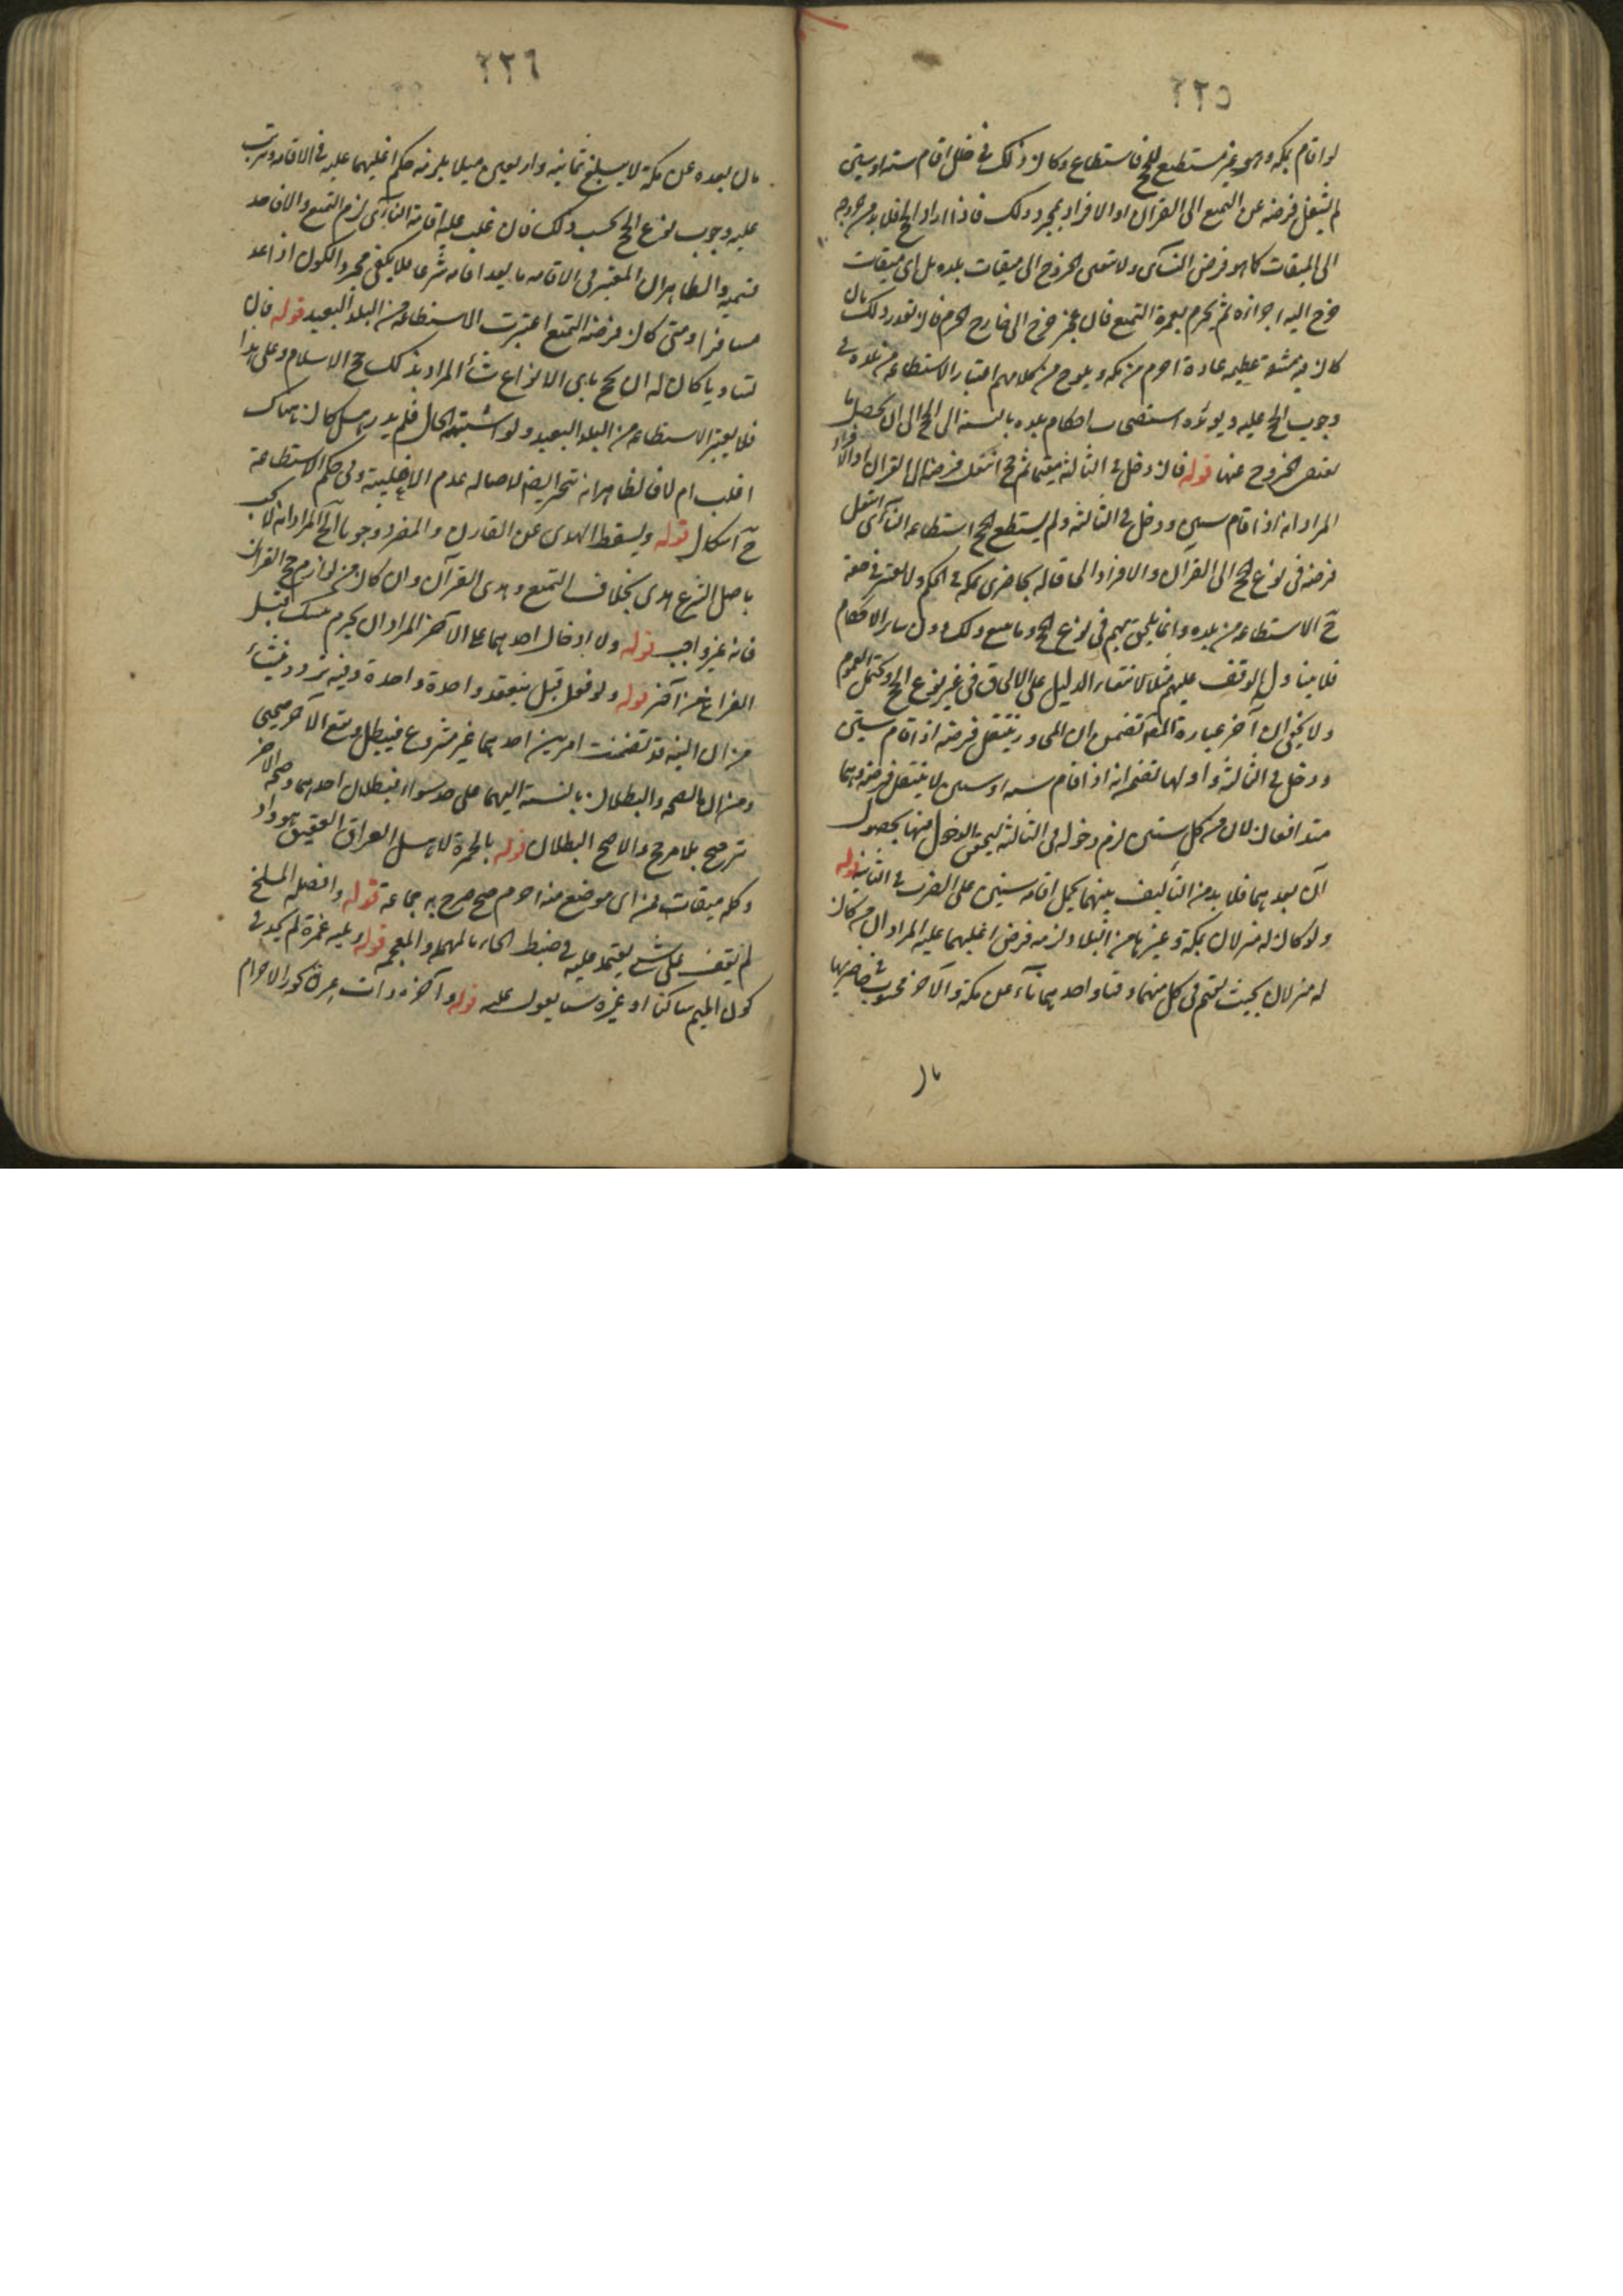 ٢٢٥
لو اقام بمكة وهو غير مستطيع للحج فاستطاع وكان ذلك في خلال اقامة سنة او سنتين
لم ينتقل فرضه عن التمتع الى القران او الافراد بمجرد ذلك فاذا اراد الحج فلا بد من خروجه
الى الميقات كما هو فرض النائي ولا يتعين الخروج الى ميقات بلده بل اي ميقات
خرج اليه اجزاه ثم يحرم بعمرة التمتع فان عجز خرج الى خارج الحرم فان تعذر ذلك بان
كان فيه مشقة عظيمة عادة احرم من مكة ويلوح من كلامهم اعتبار الاستطاعة من بلده في
وجوب الحج عليه ويؤيده استصحاب احكام بلده بالنسبة الى الحج الى ان يحصل ما
يقتضي الخروج عنها قوله فان دخل في الثالثة مقيما ثم حج انتقل فرضه الى القران او الافراد
المراد انه اذا اقام سنتين ودخل في الثالثة ولم يستطع للحج استطاعة النائي انتقل
فرضه في نوع الحج الى القران والافراد الحاقا له بحاضري مكة في الحكم ولا يعتبر في حقه
ح الاستطاعة من بلده وانما يلحق بهم في نوع الحج وما يتبع ذلك دون ساير الاحكام
فلا يتناوله الوقف عليهم مثلا لانتفاء الدليل على الالحاق في غير نوع الحج ويحتمل العموم
ولا يخفى ان آخر عبارة المصنف تتضمن ان المجاور ينتقل فرضه اذا اقام سنتين
ودخل في الثالثة واولها تضمن انه اذا اقام سنة او سنتين لا ينتقل فرضه وهما
متدافعان لان من كمل سنتين لزم دخوله في الثالثة ليحقق الدخول فيها بحصول
آن بعدهما فلا بد من التأليف بينهما بحمل اقامة سنتين على القرب في الثانية قوله
ولو كان له منزلان بمكة وغيرها من البلاد لزمه فرض اغلبهما عليه المراد ان من كان
له منزلان بحيث يقيم في كل منهما وقتا واحدهما نآء عن مكة والآخر محسوب في حاضريها
بان
٢٢٦
بان بعده عن مكة لا يبلغ ثمانية واربعين ميلا يلزمه حكم اغلبهما عليه في الاقامة وترتب
عليه وجوب نوع الحج بحسب ذلك فان غلب عليه اقامة النائي لزم التمتع والا فاحد
قسيميه والظاهر ان المعتبر في الاقامة ما يعد اقامة شرعا فلا يكفي مجرد الكون اذا عد
مسافرا ومتى كان فرضه التمتع اعتبرت الاستطاعة من البلد البعيد قوله فان
تساويا كان له ان يحج باي الانواع شاء المراد بذلك حج الاسلام وعلى هذا
فلا يعتبر الاستطاعة من البلد البعيد ولو اشتبه الحال فلم يدر هل كان هناك
اغلب ام لا فالظاهر انه يتخير ايضا لاصالة عدم الاغلبية وفي حكم الاستطاعة
ح اشكال قوله ويسقط الهدي عن القارن والمفرد وجوبا الخ المراد انه لا يجب
باصل الشرع هدي بخلاف التمتع وهدي القران وان كان من لوازم حج القران
فانه غير واجب قوله ولا ادخال احدهما على الآخر المراد ان يحرم بنسك قبل
الفراغ من آخر قوله ولو فعل قيل ينعقد واحدة واحدة وفيه تردد ينشاء
من ان النية قد تضمنت امرين احدهما غير مشروع فيبطل ويقع الآخر صحيحا
ومن ان الصحة والبطلان بالنسبة اليهما على حد سواء فبطلان احدهما وصحة الآخر
ترجيح بلا مرجح والاصح البطلان قوله بالحمرة لاهل العراق العقيق هو واد
وكله ميقات فمن اي موضع منه احرم صح صرح به جماعة قوله وافضله المسلخ
لم نقف على شي يعتمد عليه في ضبط الحاء بالمهملة والمعجمة قوله ويليه غمرة لم نجد في
كون الميم ساكنا او غيره شيئا يعول عليه قوله وآخره ذات عرق يجوز الاحرام